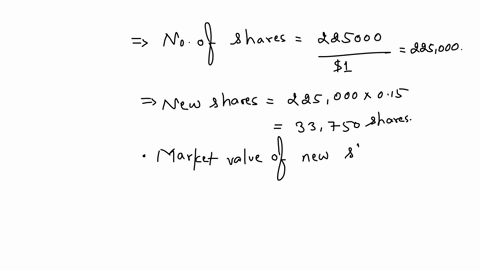 ⇒ No. of shares = 225000 / $1 = 225,000.
⇒ New shares = 225,000 × 0.15
= 33,750 shares.
• Market value of new s